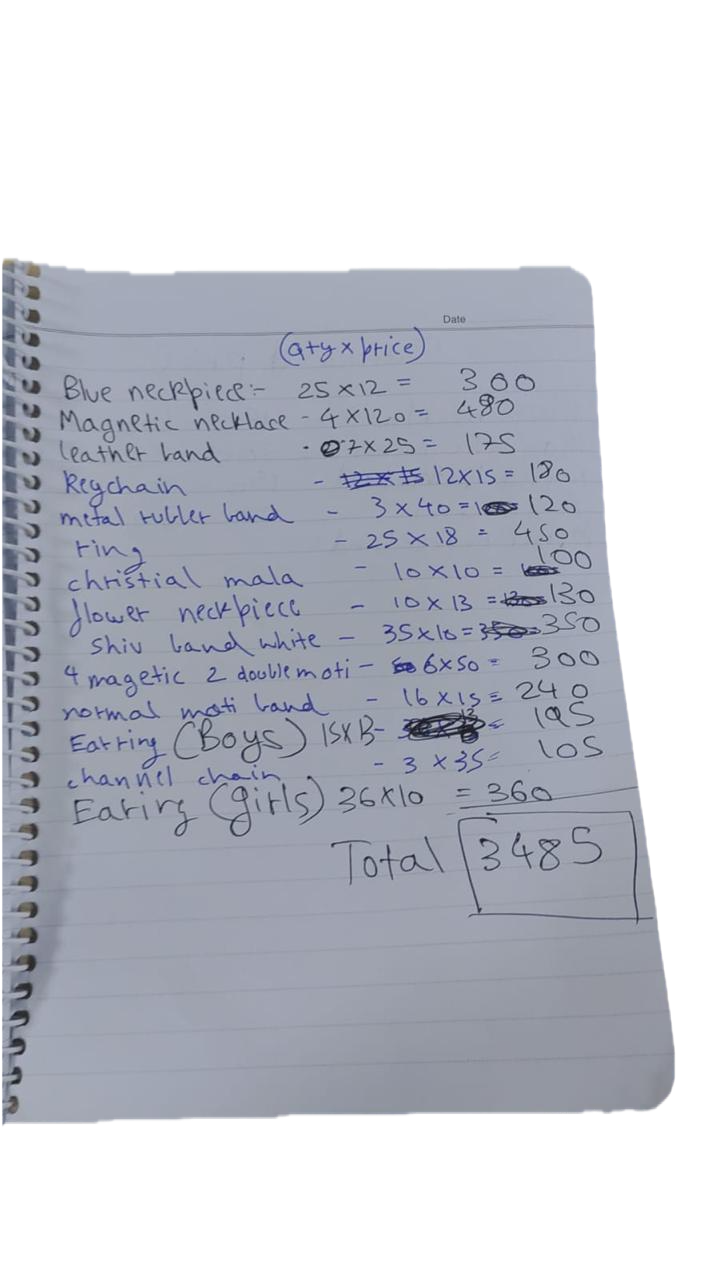 Date
(qty x price)
Blue neckpiece:- 25 x 12 = 300
Magnetic necklace - 4 x 120 = 480
leather band - 07 x 25 = 175
Keychain - 12 x 15 = 180
metal rubber band - 3 x 40 = 120
ring - 25 x 18 = 450
christial mala - 10 x 10 = 100
flower neckpiece - 10 x 13 = 130
Shiv band white - 35 x 10 = 350
4 magetic 2 double moti - 6 x 50 = 300
normal moti band - 16 x 15 = 240
Earring (Boys) 15 x 13 - = 195
channel chain - 3 x 35 = 105
Earing (girls) 36 x 10 = 360
Total 3485